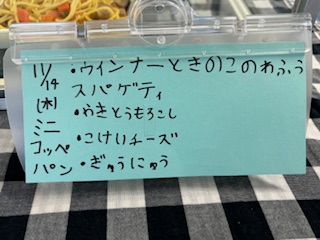 11/14
(木)
ミニ
コッペ
パン
・ウインナーときのこのわふう
スパゲティ
・やきとうもろこし
・こけいチーズ
・ぎゅうにゅう